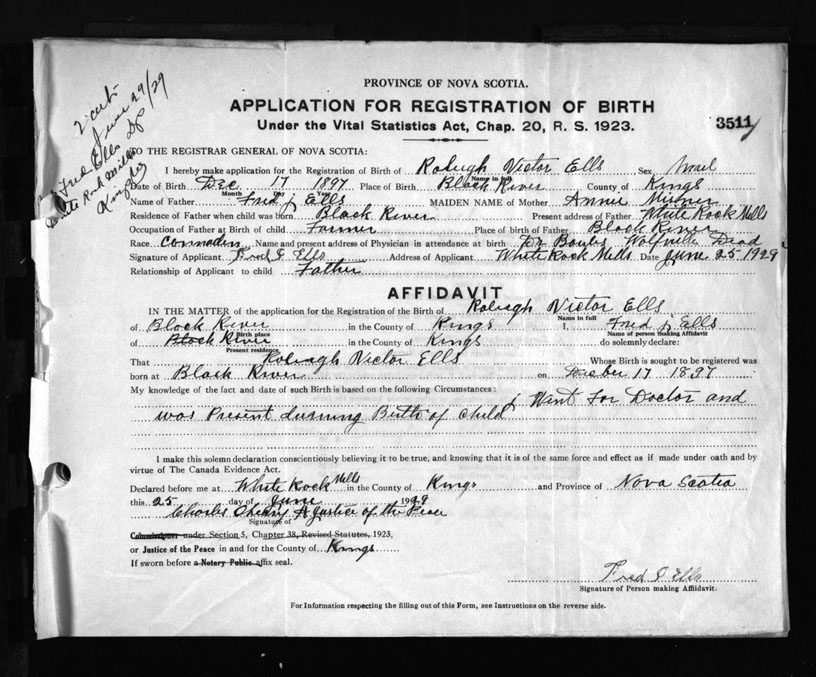 2 cert
June 29/29
Fred Ells
White Rock Mills
Kings Co
PROVINCE OF NOVA SCOTIA.
APPLICATION FOR REGISTRATION OF BIRTH
Under the Vital Statistics Act, Chap. 20, R. S. 1923.
3511
TO THE REGISTRAR GENERAL OF NOVA SCOTIA:
I hereby make application for the Registration of Birth of Roleigh Victor Ells Sex Mael
Name in full
Date of Birth Dec 17 1897 Place of Birth Black River County of Kings
Month Day Year
Name of Father Fred J Ells MAIDEN NAME of Mother Annie Milner
Residence of Father when child was born Black River Present address of Father White Rock Mills
Occupation of Father at Birth of child Farmer Place of birth of Father Black River
Race Connadien Name and present address of Physician in attendance at birth Wolfville Dead
Signature of Applicant Fred J Ells Address of Applicant White Rock Mills Date June 25 1929
Relationship of Applicant to child Father
AFFIDAVIT
IN THE MATTER of the application for the Registration of the Birth of Roleigh Victor Ells
Name in full
of Black River in the County of Kings I, Fred J Ells
Birth place Name of person making Affidavit
of Black River in the County of Kings do solemnly declare:
Present residence
That Roleigh Victor Ells Whose Birth is sought to be registered was
born at Black River on 17 1897
My knowledge of the fact and date of such Birth is based on the following Circumstances:
I Want For Doctor and
was Present durning Birth of Child
I make this solemn declaration conscientiously believing it to be true, and knowing that it is of the same force and effect as if made under oath and by
virtue of The Canada Evidence Act.
Declared before me at White Rock Mills in the County of Kings and Province of Nova Scotia
this 25 day of June 1929
A Justice of the Peace
Signature of
Commissioner under Section 5, Chapter 38, Revised Statutes, 1923,
or Justice of the Peace in and for the County of Kings
If sworn before a Notary Public affix seal.
Fred J Ells
Signature of Person making Affidavit.
For Information respecting the filling out of this Form, see Instructions on the reverse side.